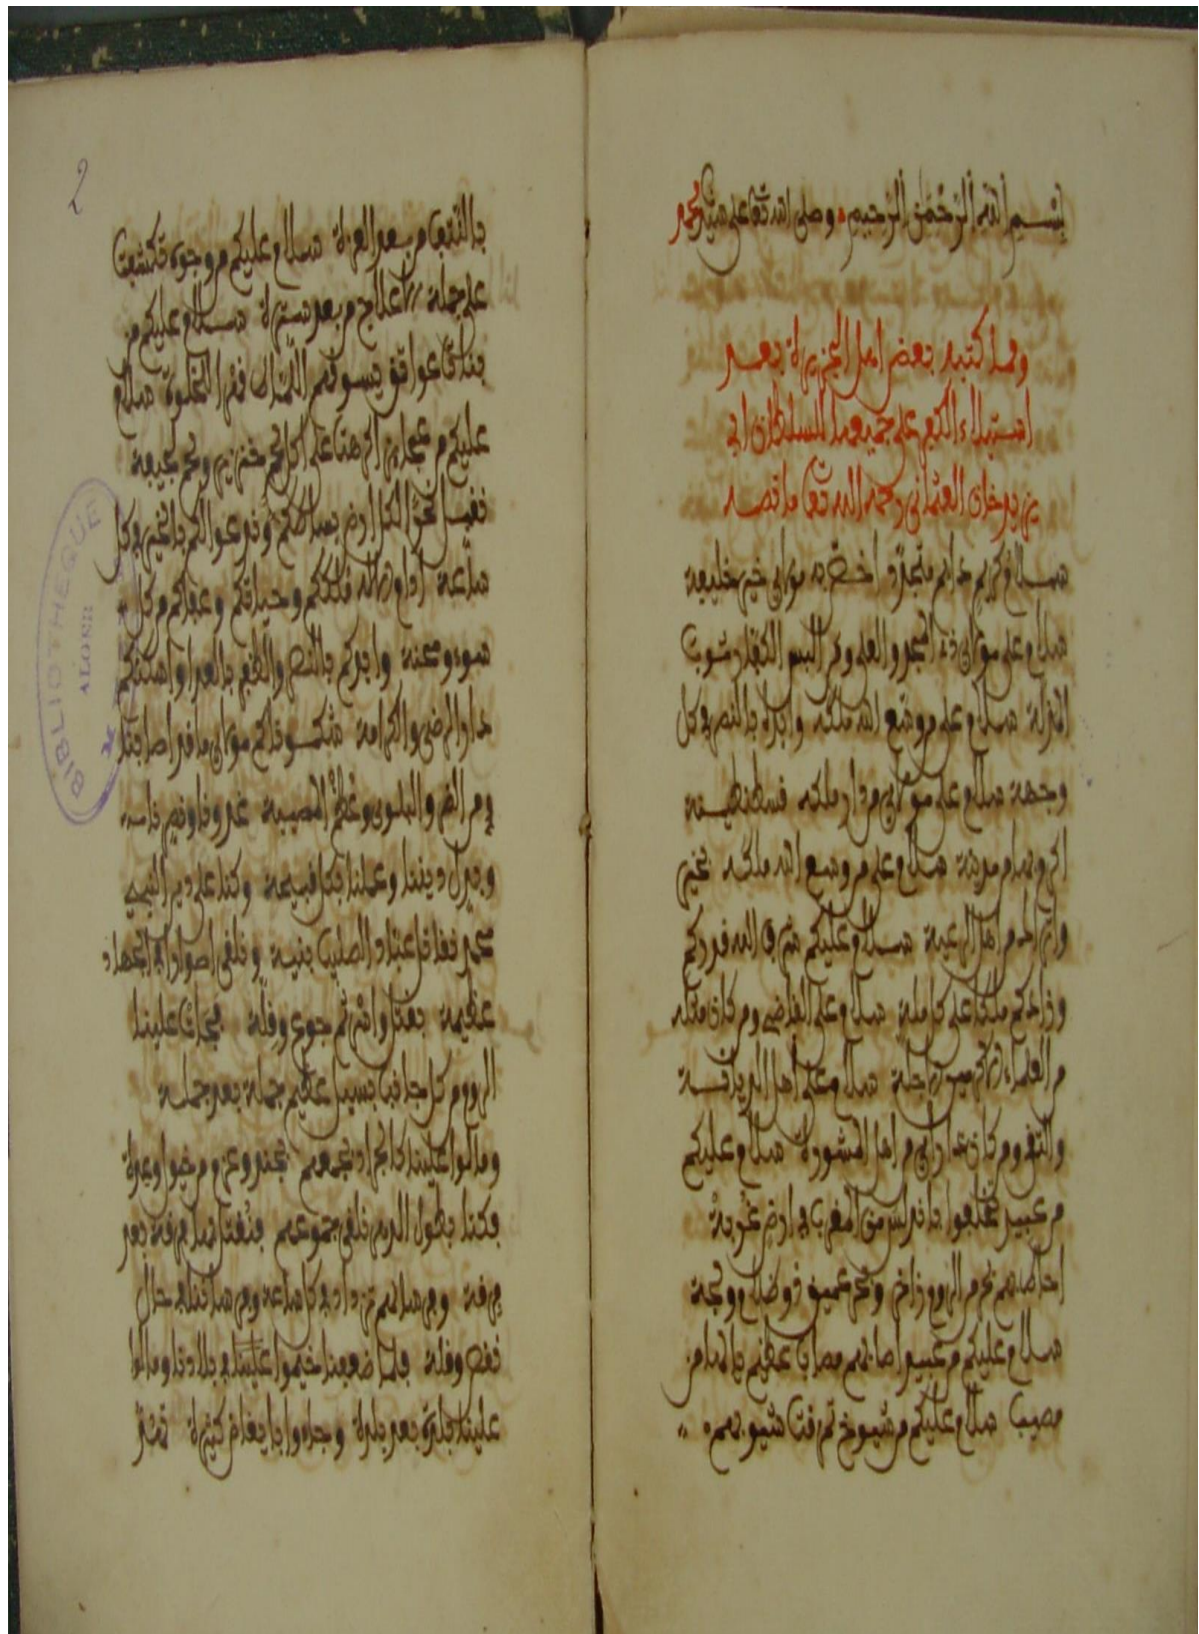 بسم الله الرحمن الرحيم وصلى الله تعالى على سيدنا محمد
ومما كتبه بعض اهل الجزيرة بعد
استيلاء الكفر على جميعها للسلطان ابي
يزيد خان العثماني رحمه الله تعالى ما نصه
سلام كريم دايم متجدد اخص به مولاي خير خليفة
سلام على مولاي ذي المجد والعلى ومن البس الكفار ثوب
المذلة سلام على من وسع الله ملكه وايده بالنصر في كل
وجهة سلام على مولاي من دار ملكه قسطنطينة
اكرم بها من مدينة سلام على من وسع الله ملكه بخير
واتراك من اهل الرعية سلام عليكم شرف الله قدركم
وزادكم ملكا على كل ملة سلام على القاضي ومن كان مثله
من العلماء الاكرمين الاجلة سلام على اهل الديانة
والتقى ومن كان ذا راي من اهل المشورة سلام عليكم
من عبيد تخلفوا باندلس من المغرب في ارض غربة
احاط بهم بحر من الروم زاخر وبحر عميق ذو ظلام ولجة
سلام عليكم من عبيد اصابهم مصاب عظيم يا لها من
مصيبة سلام عليكم من شيوخ تمزقت شيوبهم
2
بالنتف من بعد العزة سلام عليكم من وجوه تكشفت
على جملة الاعلاج من بعد سترة سلام عليكم من
بنات عواتق يسوقهم اللباط قهرا لخلوة سلام
عليكم من عجايز اكرهت على اكل لحم خنزير ولحم لجيفة
نقبل نحن الكل ارض بساطكم وندعو لكم بالخير في كل
ساعة ادام الاله ملككم وحياتكم وعفاكم من كل
سوء ومحنة وايدكم بالنصر والظفر بالعدا واسكنكم
دار الرضى والكرامة شكونا لكم مولاي ما قد اصابنا
من الضر والبلوى وعظم المصيبة غدرنا ونصرنا
وبدل ديننا وعملنا بكل قبيحة وكنا على دين النبي
محمد نقاتل عباد الصليب بنية ونلقى امورا في الجهاد
عظيمة بقتل واسر ثم جوع وقلة فجاءت علينا
الروم من كل جانب بسيل عظيم جملة بعد جملة
ومالوا علينا كالجراد بجمعهم بجد وعزم من خيول وعدة
فكنا بطول الدهر نلقى جموعهم فنقتل فيها فرقة بعد
فرقة وفرسانهم تزداد في كل ساعة وفرساننا في حال
نقص وقلة فلما ضعفنا خيموا في بلادنا ومالوا
علينا بلدة بعد بلدة وجاءوا بانفاض كثيرة تهد
BIBLIOTHEQUE
ALGER